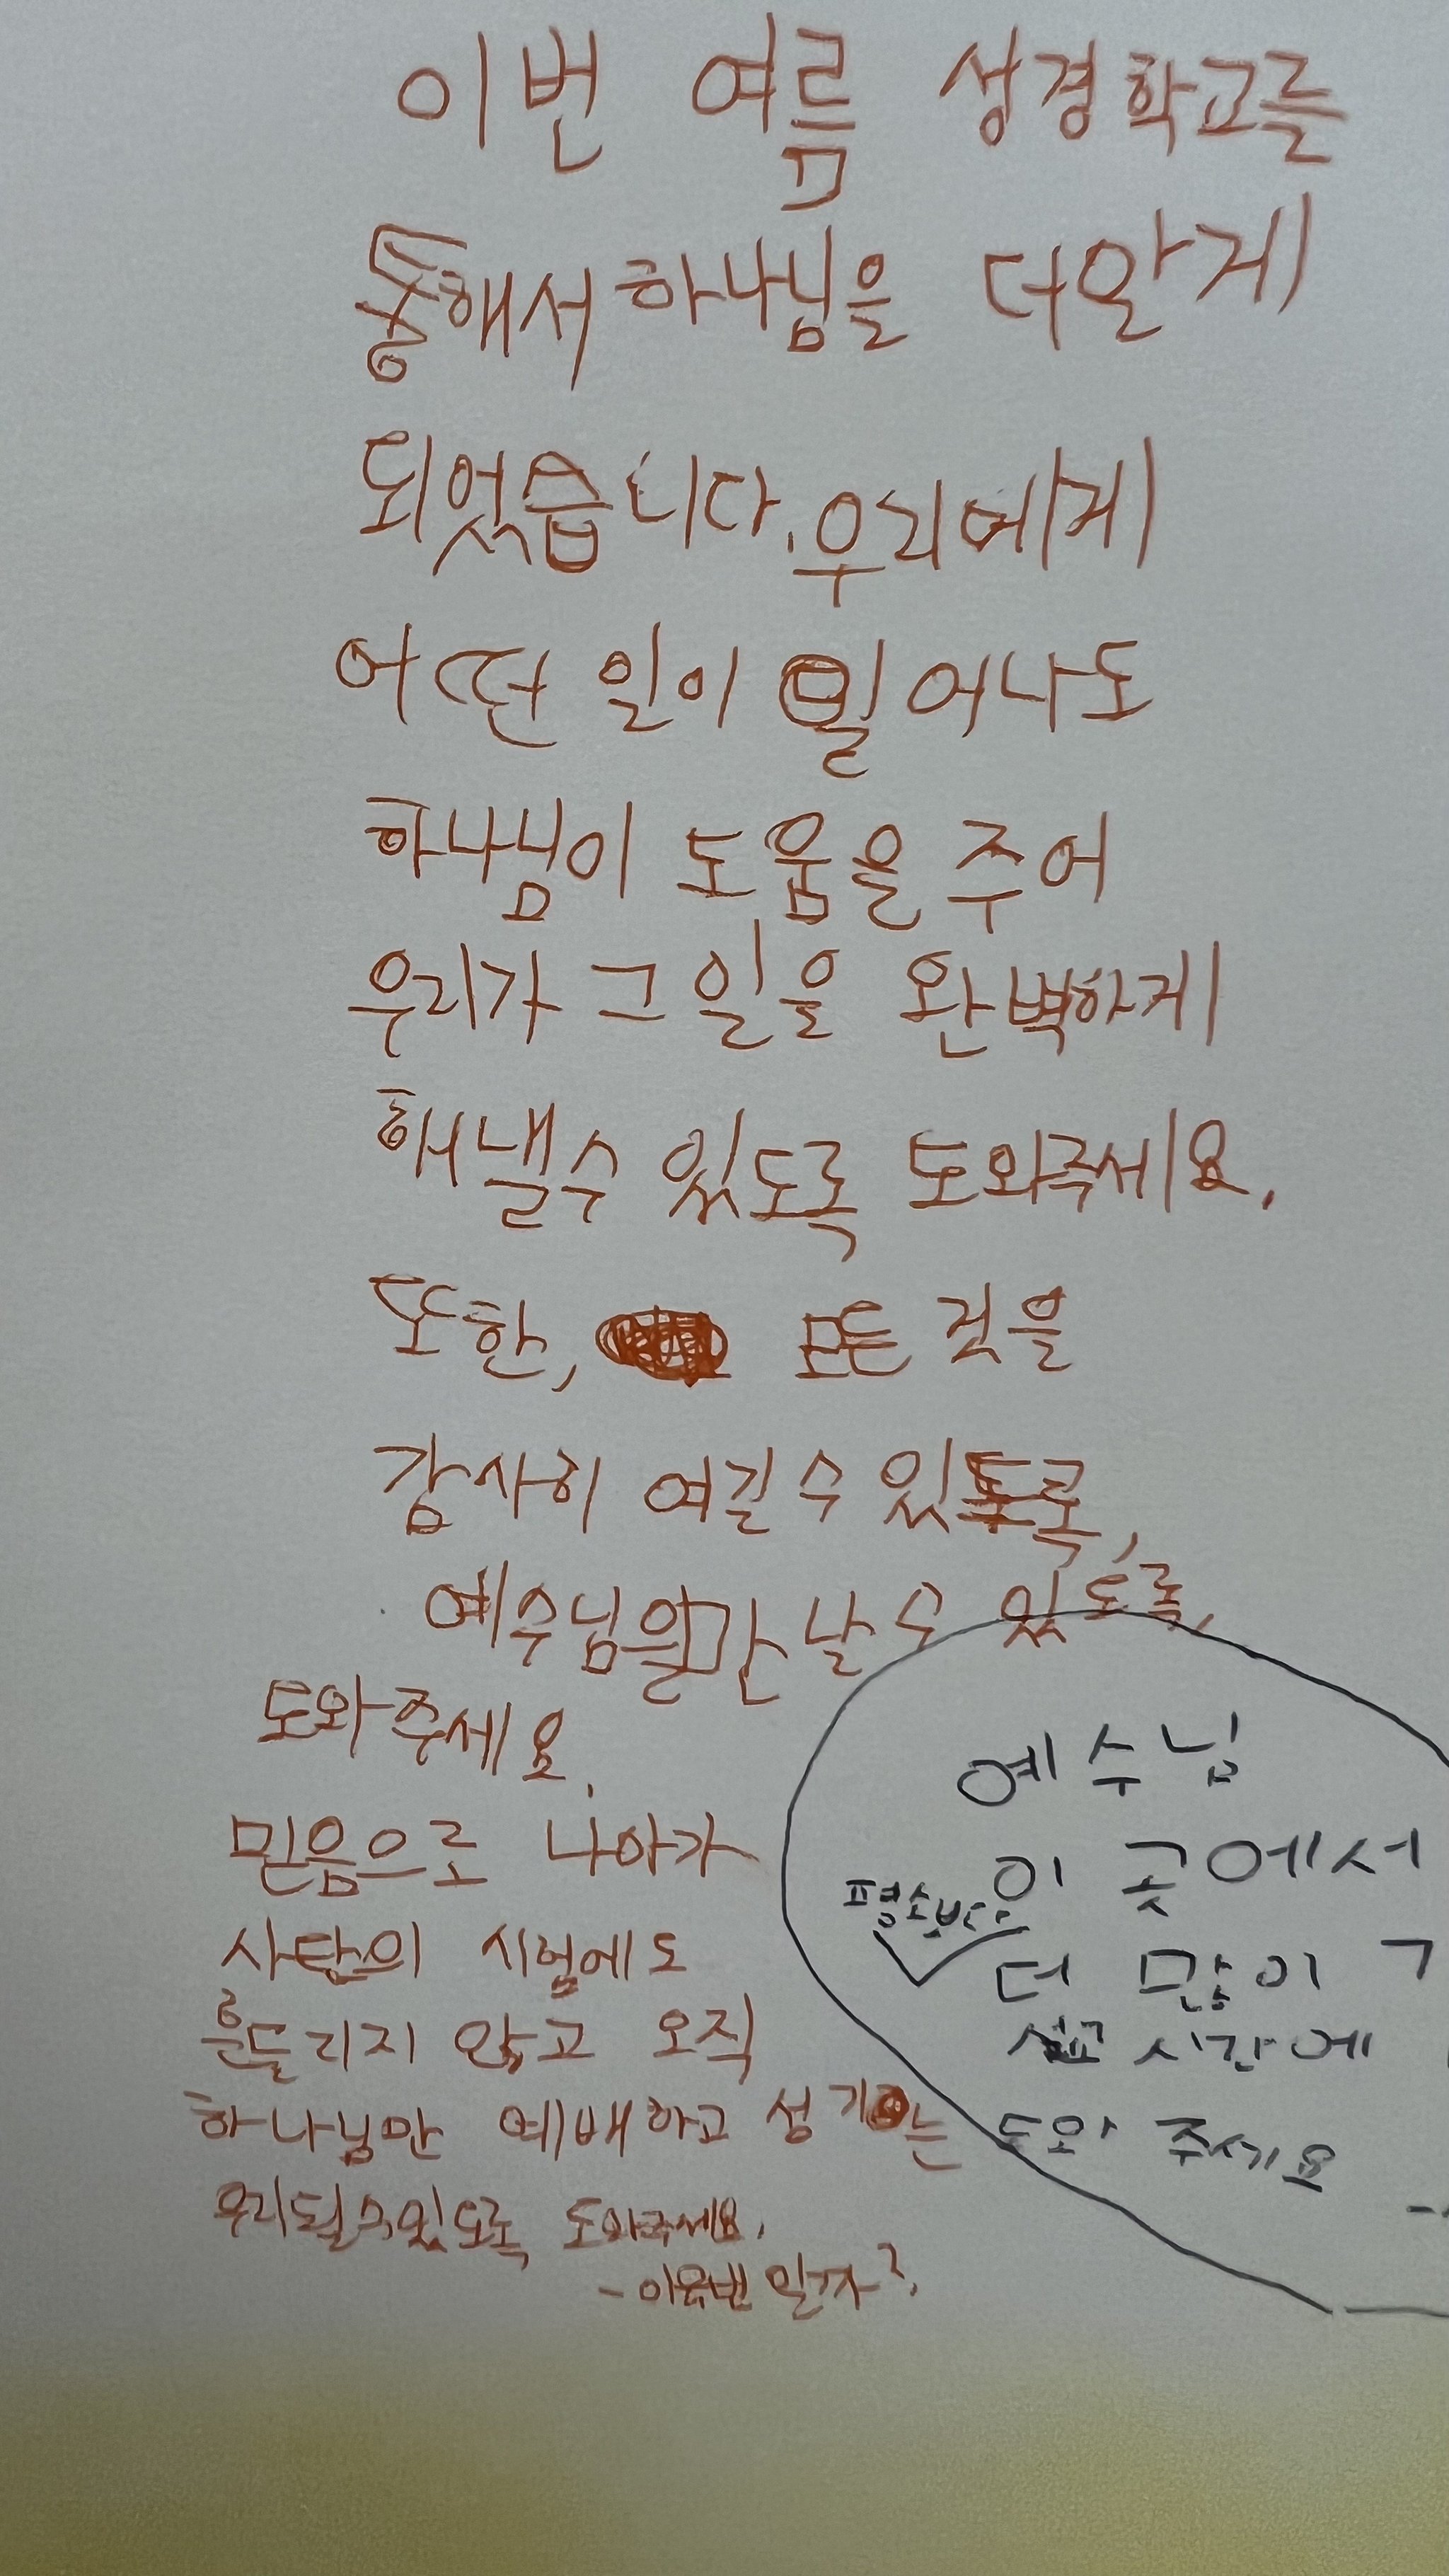 이번 여름 성경학교를
통해서 하나님을 더 알게
되었습니다. 우리에게
어떤 일이 일어나도
하나님이 도움을 주어
우리가 그 일을 완벽하게
해낼 수 있도록 도와주세요.
또한, 모든 것을
감사히 여길 수 있도록,
예수님을 만날 수 있도록,
도와주세요.
믿음으로 나아가
사탄의 시험에도
흔들리지 않고 오직
하나님만 예배하고 섬기는
우리 될 수 있도록 도와주세요.
예수님
이 곳에서
평소보다
더 많이
설교 시간에
도와 주세요